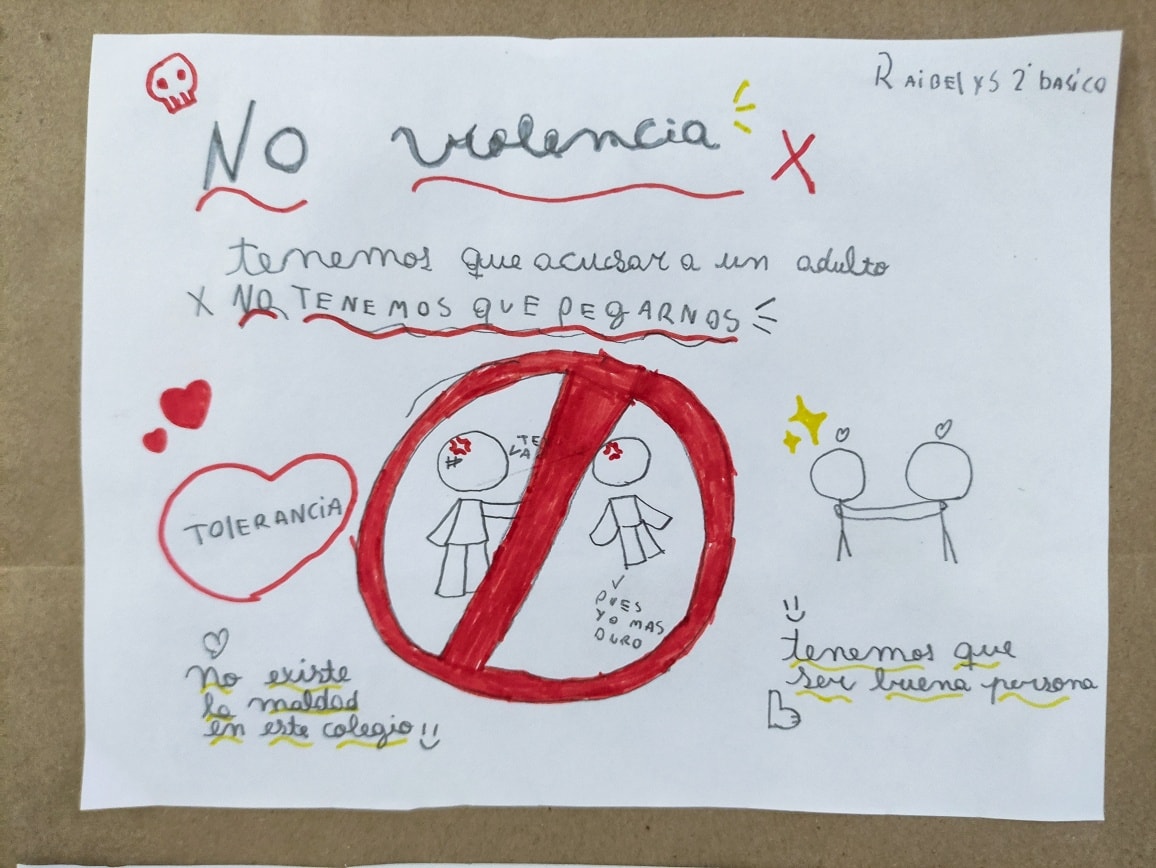 RAiBElYS 2° basico
No violencia
X
tenemos que acusar a un adulto
X NO TENEMOS QUE PEGARNOS
TOlERANCiA
TE
LA
PUES
YO MAS
DURO
No existe
la maldad
en este colegio
tenemos que
ser buena persona